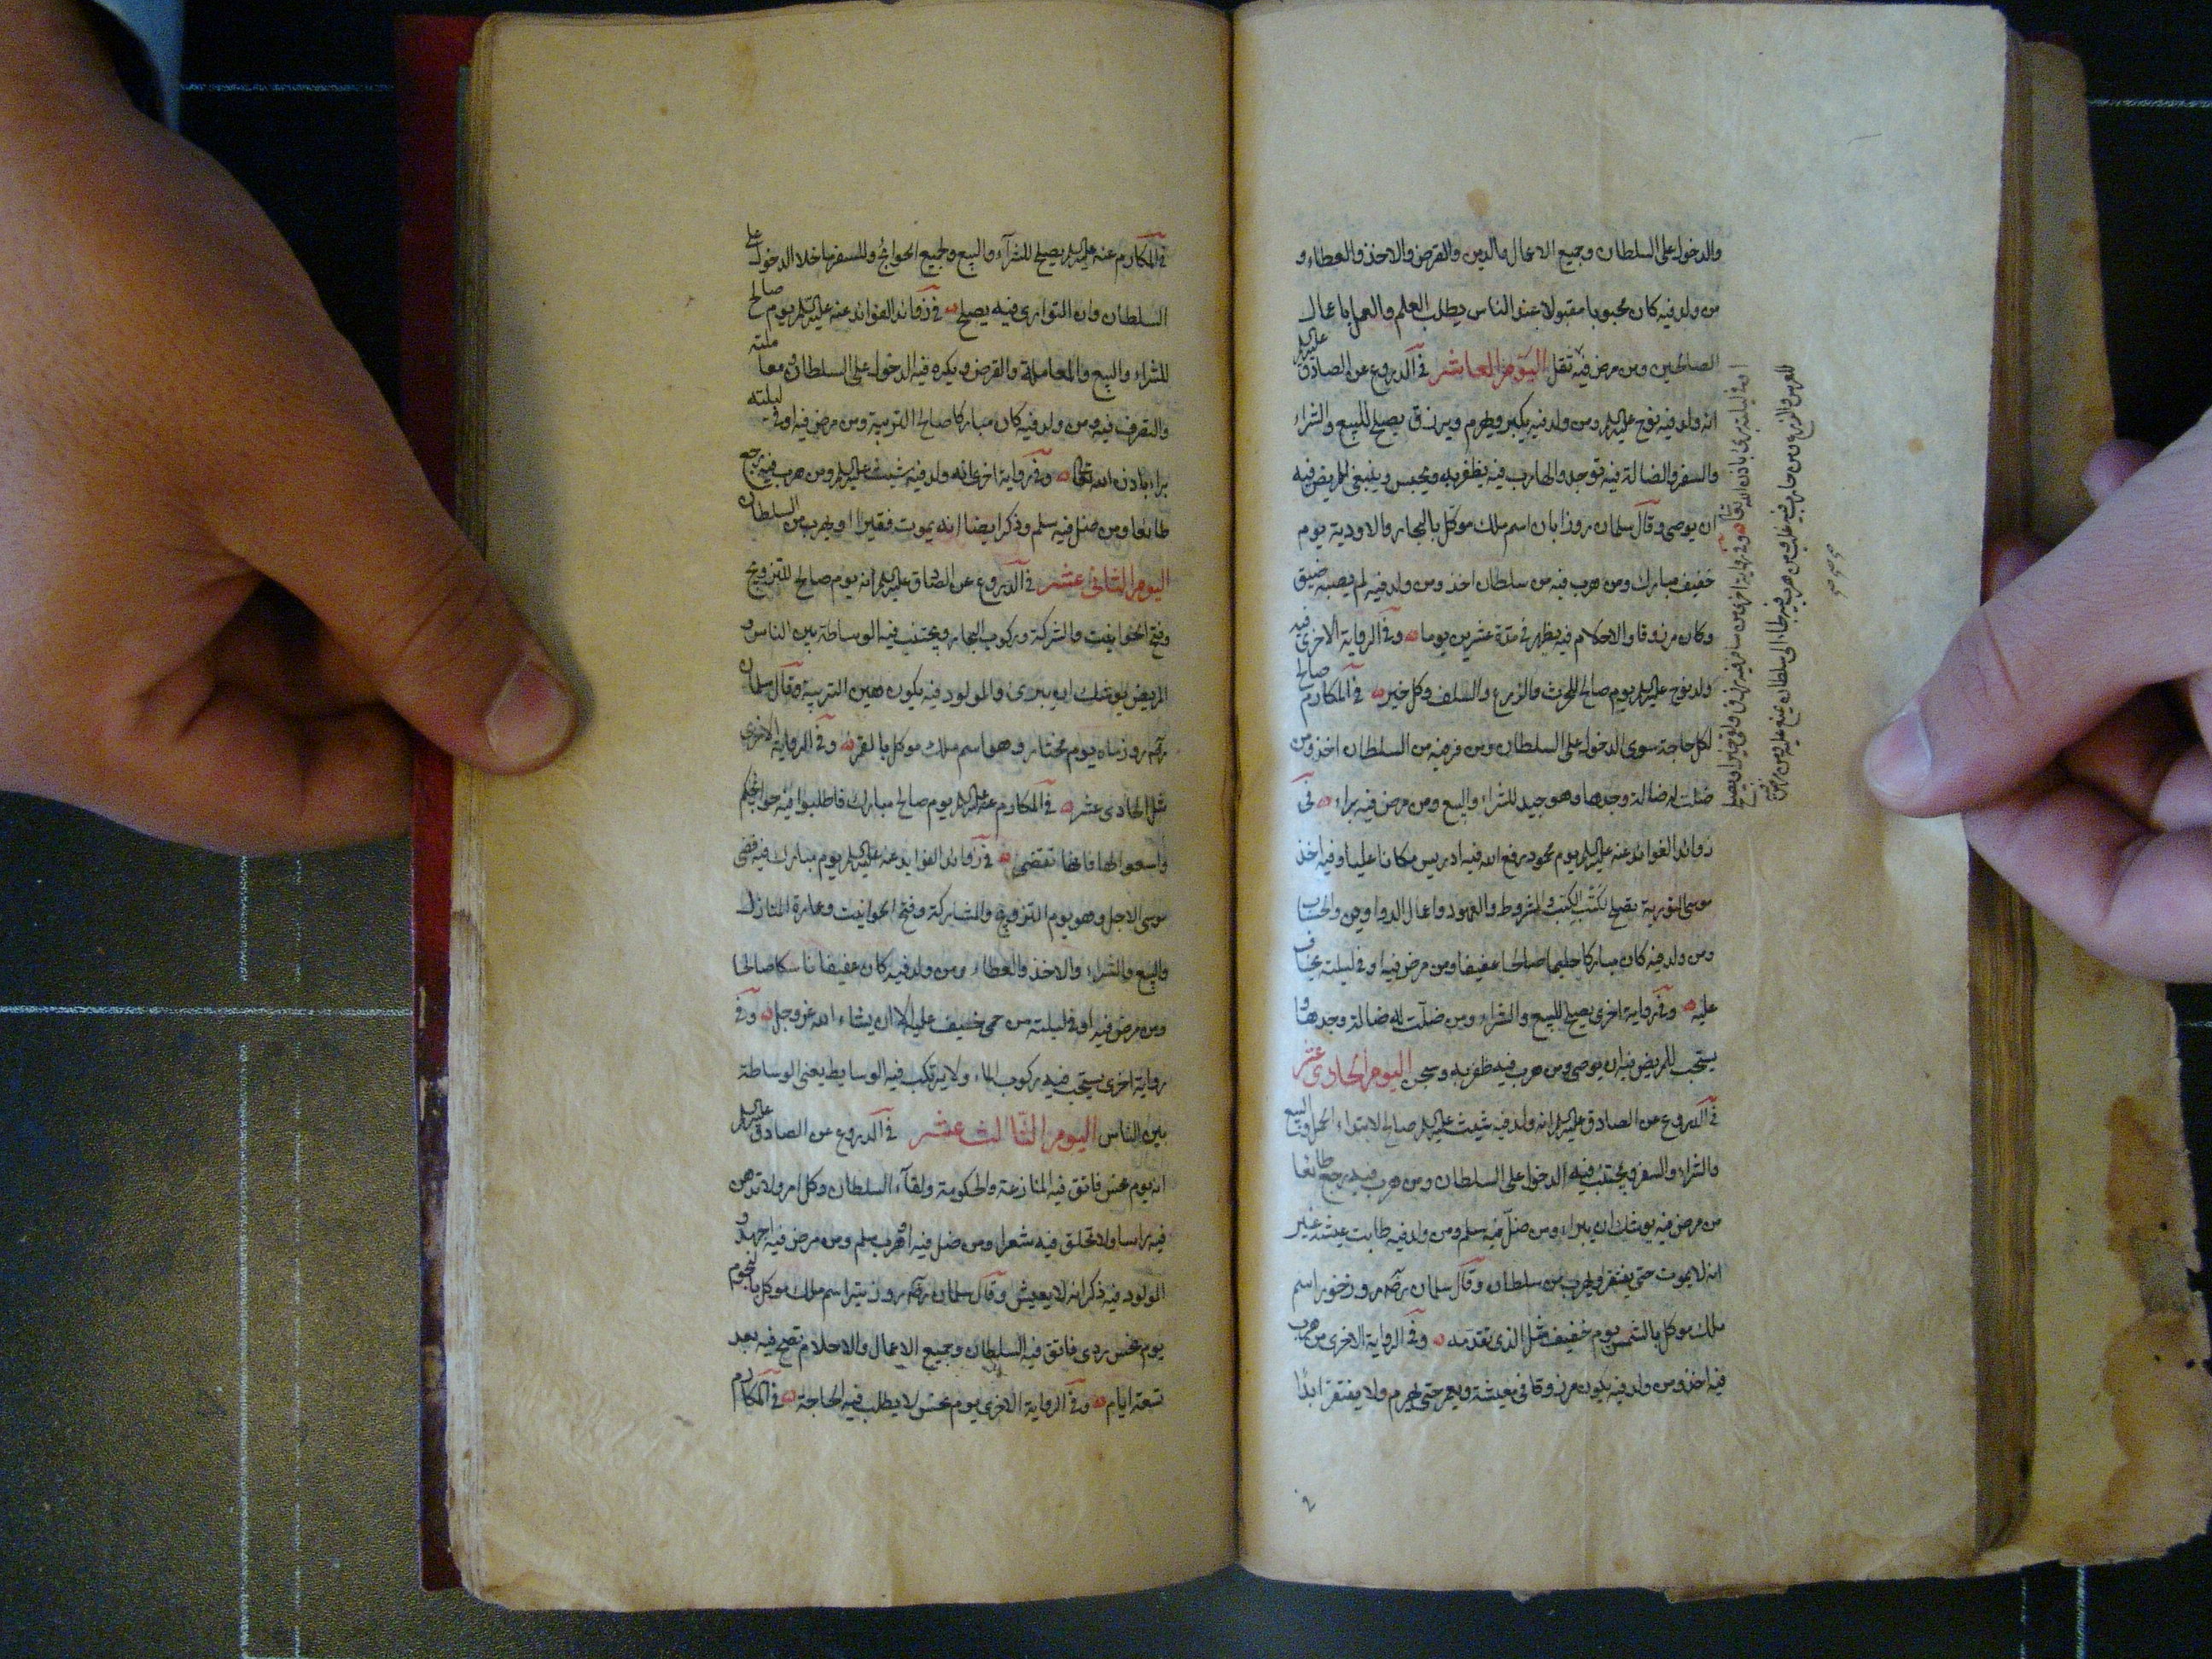 والدخول على السلطان وجميع الاعمال والدين والقرض والاخذ والعطاء و
من ولد فيه كان محبوبا مقبولا عند الناس يطلب العلم والعمل باعمال
الصالحين ومن مرض فيه ثقل اليوم العاشر في الدروع عن الصادق عليه السلم
انه ولد فيه نوح عليه السلم ومن ولد فيه يكبر ويهرم ويرزق يصلح للبيع والشراء
والسفر والضالة فيه توجد والهارب فيه يظفر به ويحبس وينبغي للمريض فيه
ان يوصي وقال سلمان روز ابان اسم ملك موكل بالبحار والاودية يوم
خفيف مبارك ومن هرب فيه من سلطان اخذ ومن ولد فيه لم يصبه ضيق
وكان مرزوقا والاحلام فيه يظهر في مدة عشرين يوما وفي الرواية الاخرى فيه
ولد نوح عليه السلم يوم صالح للحرث والزرع والسلف وكل خير في المكارم صالح
لكل حاجة سوى الدخول على السلطان ومن فر فيه من السلطان اخذ ومن
ضلت له ضالة وجدها وهو جيد للشراء والبيع ومن مرض فيه براء في
زوائد الفوائد عنه عليه السلم يوم محمود رفع الله فيه ادريس مكانا عليا وفيه اخذ
موسى التورية يصلح لكتب الكتب والشروط والعهود واعمال الدواوين والحساب
ومن ولد فيه كان مباركا حليما صالحا عفيفا ومن مرض فيه او في ليلته يخاف
عليه وفي رواية اخرى يصلح للبيع والشراء ومن ضلت له ضالة وجدها و
يستحب للمريض فيه ان يوصي ومن هرب فيه ظفر به وسجن اليوم الحادي عشر
في الدروع عن الصادق عليه السلم انه ولد فيه شيث عليه السلم صالح لابتداء العمل والبيع
والشراء والسفر ويجتنب فيه الدخول على السلطان ومن هرب فيه رجع طائعا
من مرض فيه يوشك ان يبراء ومن ضل فيه سلم ومن ولد فيه طابت عيشته غير
انه لا يموت حتى يفتقر ويهرب من سلطان وقال سلمان رضه روز خور اسم
ملك موكل بالشمس يوم خفيف مثل الذي تقدمه وفي الرواية الاخرى من هرب
فيه اخذ ومن ولد فيه يكون مرزوقا في معيشته ويعمر حتى يهرم ولا يفتقر ابدا
او في ليلته برئ باذن الله تعا وفي رواية اخرى من سافر فيه رزق
للغرس والزرع ومن حارب فيه غلب ومن هرب فيه لجاء الى سلطان
في المكارم عنه عليه السلم يصلح للشراء والبيع ولجميع الحوائج وللسفر ما خلا الدخول على
السلطان وان التواري فيه يصلح في زوائد الفوائد عنه عليه السلم يوم صالح
للشراء والبيع والمعاملة والقرض ويكره فيه الدخول على السلطان ومعاملته
والتصرف فيه ومن ولد فيه كان مباركا صالح التربية ومن مرض فيه او في ليلته
براء باذن الله تعالى وفي رواية اخرى انه ولد فيه شيث عليه السلم ومن هرب فيه رجع
طائعا ومن ضل فيه سلم وذكر ايضا انه يموت فقيرا او يهرب من السلطان
اليوم الثاني عشر في الدروع عن الصادق عليه السلم انه يوم صالح للتزويج
وفتح الحوانيت والشركة وركوب البحار ويجتنب فيه الوساطة بين الناس و
المريض يوشك ان يبرئ والمولود فيه يكون هين التربية وقال سلمان
رضه روز ماه يوم مختار وهو اسم ملك موكل بالقمر وفي الرواية الاخرى
مثل الحادي عشر في المكارم عنه عليه السلم يوم صالح مبارك فاطلبوا فيه حوايجكم
واسعوا لها فانها تقضى في زوائد الفوايد عنه عليه السلم يوم مبارك فيه قضى
موسى الاجل وهو يوم التزويج والمشاركة وفتح الحوانيت وعمارة المنازل
والبيع والشراء والاخذ والعطاء ومن ولد فيه كان عفيفا ناسكا صالحا
ومن مرض فيه او في ليلته من حمى خيف عليه الا ان يشاء الله عز وجل وفي
رواية اخرى يستحب فيه ركوب الماء ولا يرتكب فيه الوسايط يعني الوساطة
بين الناس اليوم الثالث عشر في الدروع عن الصادق عليه السلم
انه يوم نحس فاتق فيه المنازعة والحكومة ولقاء السلطان وكل امر ولا تدهن
فيه راسا ولا تحلق فيه شعرا ومن ضل فيه او هرب سلم ومن مرض فيه اجهد و
المولود فيه ذكر انه لا يعيش وقال سلمان رضه روز تير اسم ملك موكل بالنجوم
يوم نحس ردي فاتق فيه السلطان وجميع الاعمال والاحلام تصح فيه بعد
تسعة ايام وفي الرواية الاخرى يوم نحس لا يطلب فيه الحاجة في المكارم